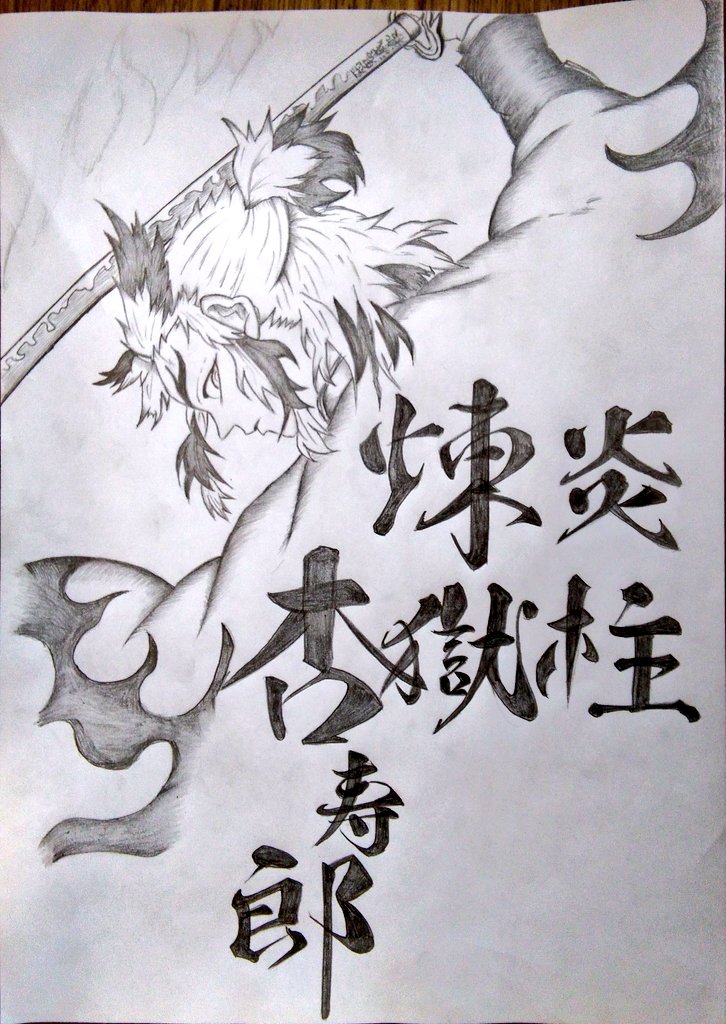 炎柱
煉獄
杏寿郎